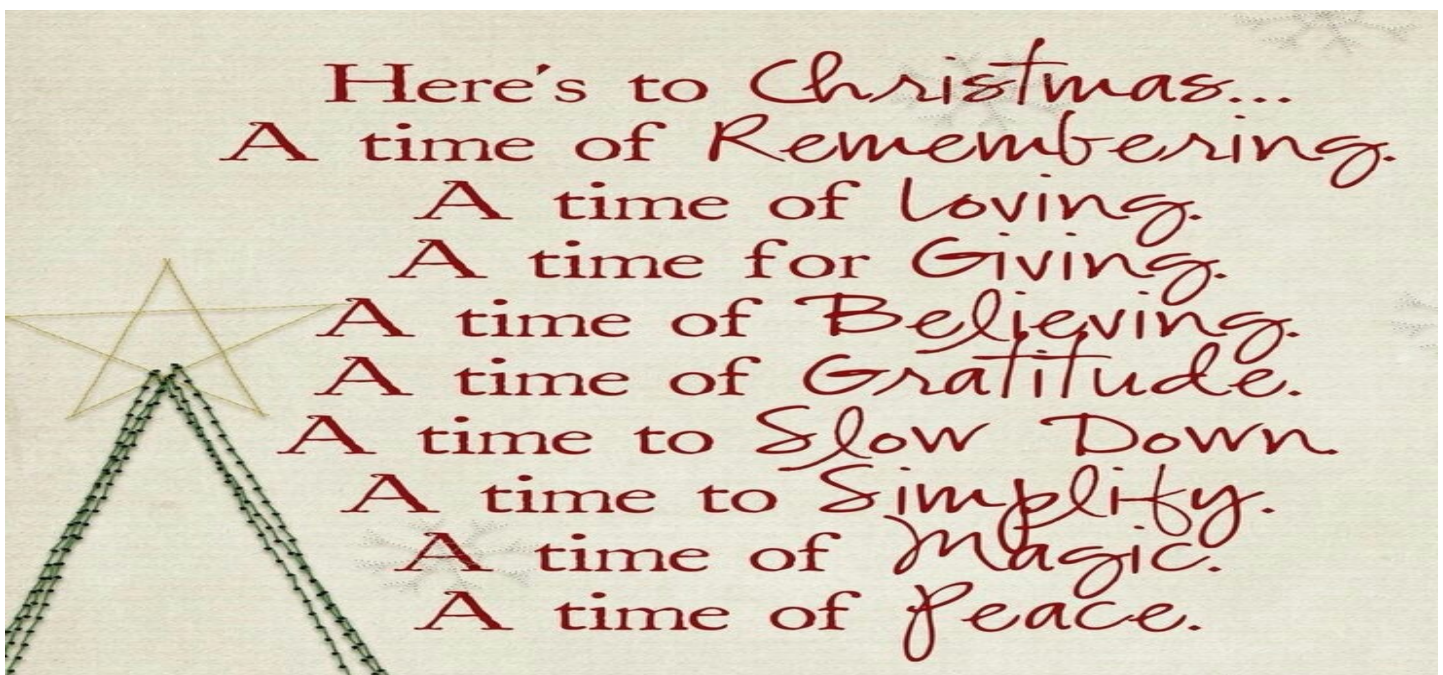 Here's to Christmas...
A time of Remembering.
A time of Loving.
A time for Giving.
A time of Believing.
A time of Gratitude.
A time to Slow Down.
A time to Simplify.
A time of Magic.
A time of Peace.